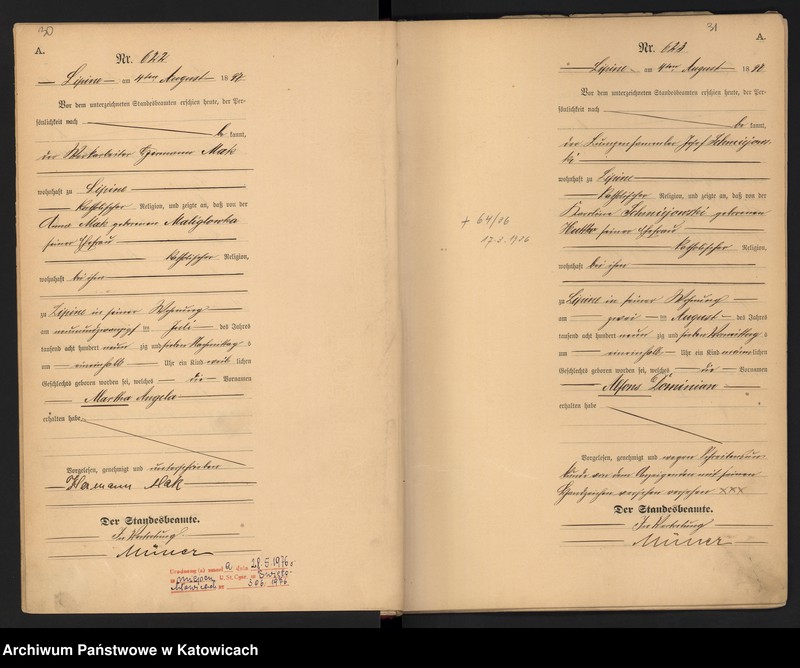 30
A.
Nr. 622
Lipine am 4ten August 1897
Vor dem unterzeichneten Standesbeamten erschien heute, der Per-
sönlichkeit nach
be kannt,
der Werkarbeiter Hermann Mak
wohnhaft zu Lipine
katholischer Religion, und zeigte an, daß von der
Anna Mak geborenen
seiner Ehefrau
katholischer Religion,
wohnhaft bei ihm
zu Lipine in seiner Wohnung
am neunundzwanzigsten Juli des Jahres
tausend acht hundert neun zig und sieben Nachmittag s
um eineinhalb Uhr ein Kind weib lichen
Geschlechts geboren worden sei, welches die Vornamen
Martha Angela
erhalten habe
Vorgelesen, genehmigt und unterschrieben
Hermann Mak
Der Standesbeamte.
In Vertretung
Müner
28.5.1976
+ 64/06
31
A.
Nr. 623
Lipine am 4ten August 1897
Vor dem unterzeichneten Standesbeamten erschien heute, der Per-
sönlichkeit nach
be kannt,
der Josef
wohnhaft zu Lipine
katholischer Religion, und zeigte an, daß von der
Karoline geborenen
seiner Ehefrau
katholischer Religion,
wohnhaft bei ihm
zu Lipine in seiner Wohnung
am zwei ten August des Jahres
tausend acht hundert neun zig und sieben Vormittag s
um eineinhalb Uhr ein Kind männ lichen
Geschlechts geboren worden sei, welches die Vornamen
Alfons Dominian
erhalten habe
Vorgelesen, genehmigt und wegen Schreibensun-
kunde von dem Anzeigenden mit seinem
Handzeichen versehen XXX
Der Standesbeamte.
In Vertretung
Müner
Archiwum Państwowe w Katowicach